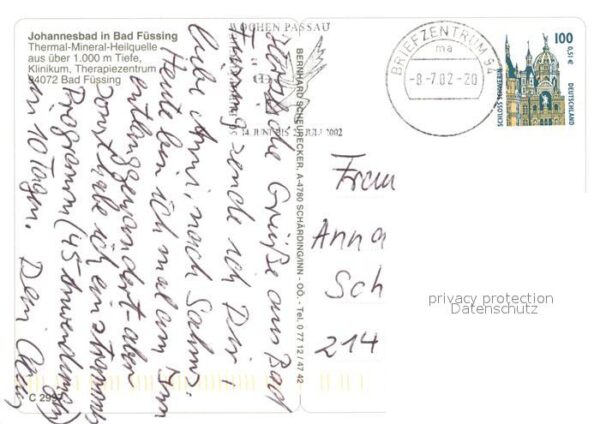 Johannesbad in Bad Füssing
Thermal-Mineral-Heilquelle
aus über 1.000 m Tiefe,
Klinikum, Therapiezentrum
94072 Bad Füssing
WOCHEN PASSAU
14. JUNI BIS JULI 2002
BRIEFZENTRUM 94
ma
-8-7.02-20
100
0,51€
DEUTSCHLAND
SCHLOSS SCHWERIN
BERNHARD SCHEURECKER, A-4780 SCHÄRDING/INN - OÖ. - Tel. 0 77 12 / 47 42
Grüße aus Bad
Füssing sende ich Dir
liebe Anni, nach
Heute bin ich mal am Inn
entlanggewandert aber
sonst habe ich ein
Programm (45 Anwendungen)
in 10 Tagen. Dein
Frau
Anna
Sch
214
C 299
privacy protection
Datenschutz